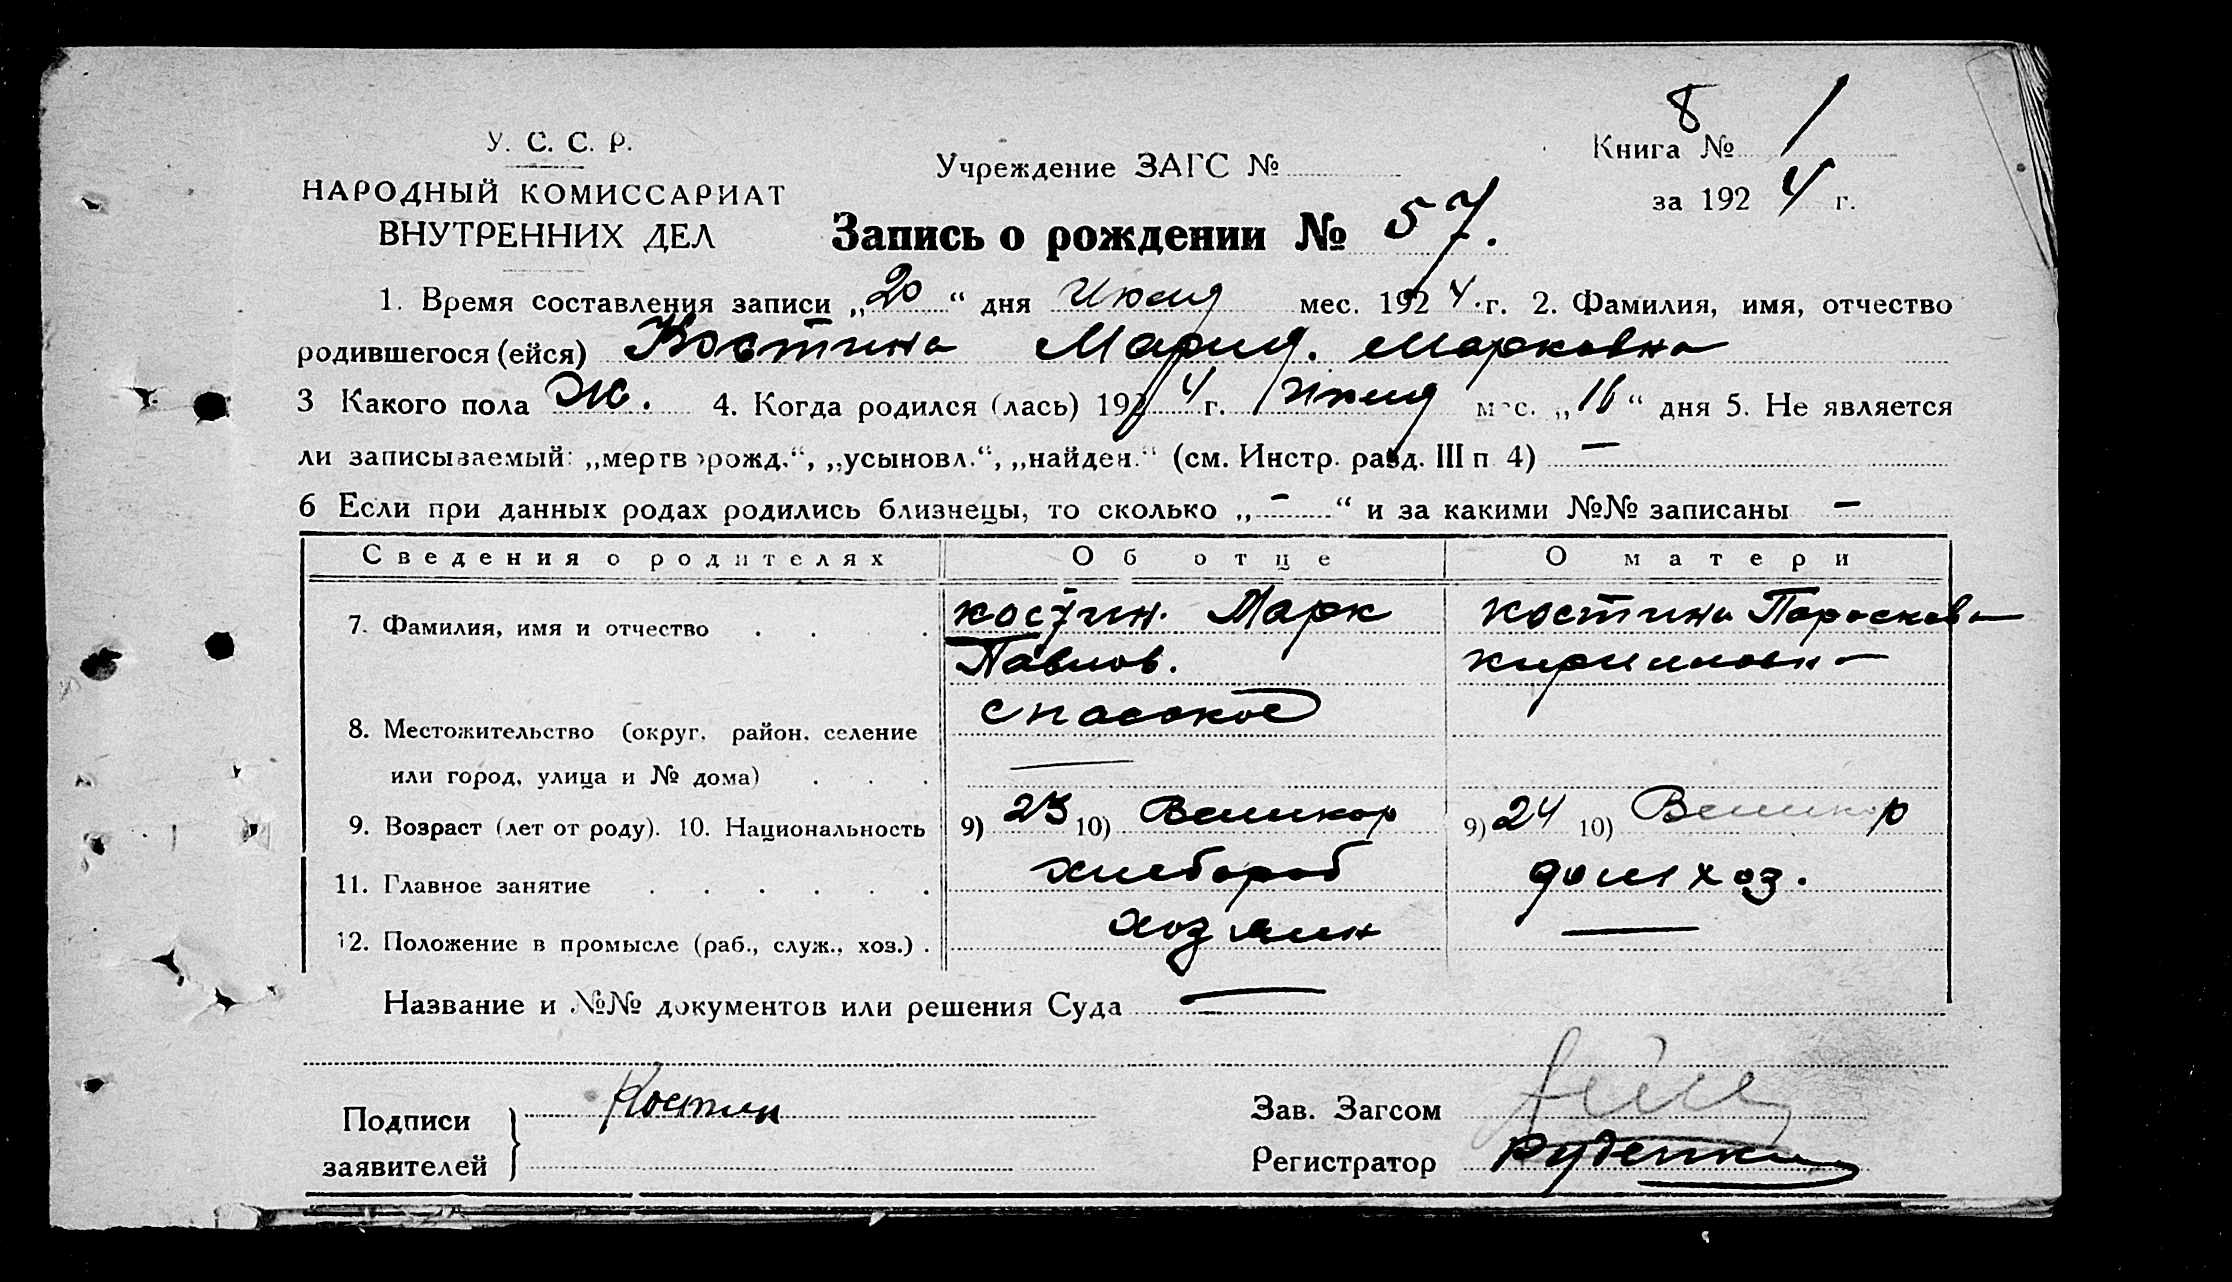 8 /
У. С. С. Р.
Книга №
Учреждение ЗАГС №
НАРОДНЫЙ КОМИССАРИАТ
за 1924 г.
ВНУТРЕННИХ ДЕЛ
Запись о рождении № 57.
1. Время составления записи „20“ дня мес. 1924 г. 2. Фамилия, имя, отчество
родившегося (ейся) Костина Мария. Марковна
3 Какого пола Ж. 4. Когда родился (лась) 1924 г. мес. „16“ дня 5. Не является
ли записываемый: „мертворожд.“, „усыновл.“, „найден.“ (см. Инстр. разд. III п 4) —
6 Если при данных родах родились близнецы, то сколько „—“ и за какими №№ записаны —
Сведения о родителях Об отце О матери
7. Фамилия, имя и отчество . . . . Костин. Марк Костина Параскева
Павлов. Кириловн
Спасское
8. Местожительство (округ, район, селение
или город, улица и № дома) . . . —
9. Возраст (лет от роду). 10. Национальность 9) 23 10) Великор 9) 24 10) Великор
11. Главное занятие . . . . . . хлебороб домхоз.
12. Положение в промысле (раб., служ., хоз.) . хозяин —
Название и №№ документов или решения Суда —
Подписи Костин Зав. Загсом
заявителей Регистратор Руденки